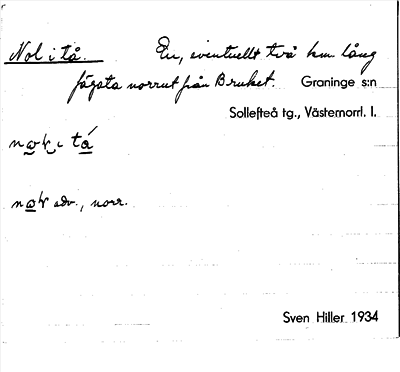 Nol i tå. En, eventuellt två km. lång
fägata norrut från Bruket. Graninge s:n
Sollefteå tg., Västernorrl. l.
i tá
adv., norr.
Sven Hiller 1934